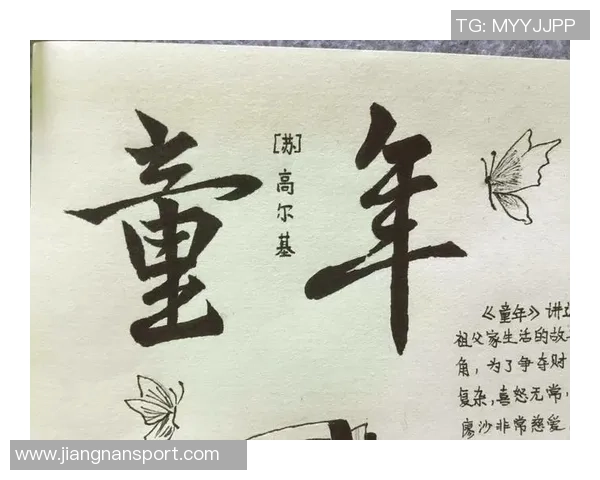 TG: MYYJJPP
童年
[苏]高尔基
《童年》讲
祖父家生活的故
角，为了争夺财
复杂，喜怒无常，
廖沙非常慈爱
www.jiangnansport.com